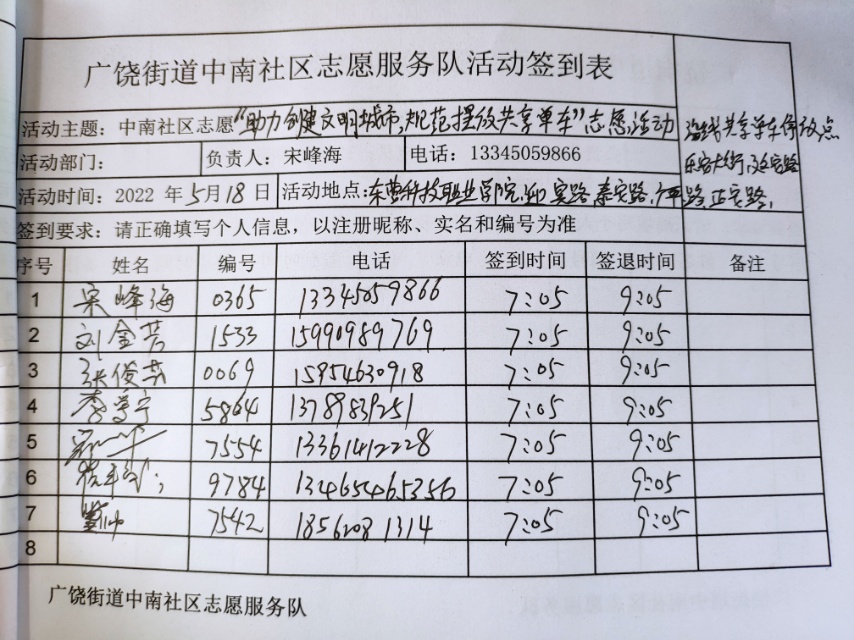 广饶街道中南社区志愿服务队活动签到表
活动主题：中南社区志愿“助力创建文明城市，规范摆放共享单车”志愿活动
沿线共享单车停放点
活动部门： 负责人：宋峰海 电话：13345059866
乐安大街
活动时间：2022 年5月18日 活动地点：东营科技职业学院、迎宾路、泰安路、
路、正安路，
签到要求：请正确填写个人信息，以注册昵称、实名和编号为准
序号 姓名 编号 电话 签到时间 签退时间 备注
1 宋峰海 0365 13345059866 7:05 9:05
2 刘金芳 1533 15990989769 7:05 9:05
3 张俊芬 0069 15954630918 7:05 9:05
4 李尊宁 5864 7:05 9:05
5 7554 13361412228 7:05 9:05
6 9784 13465465356 7:05 9:05
7 7542 1856208 1314 7:05 9:05
8
广饶街道中南社区志愿服务队